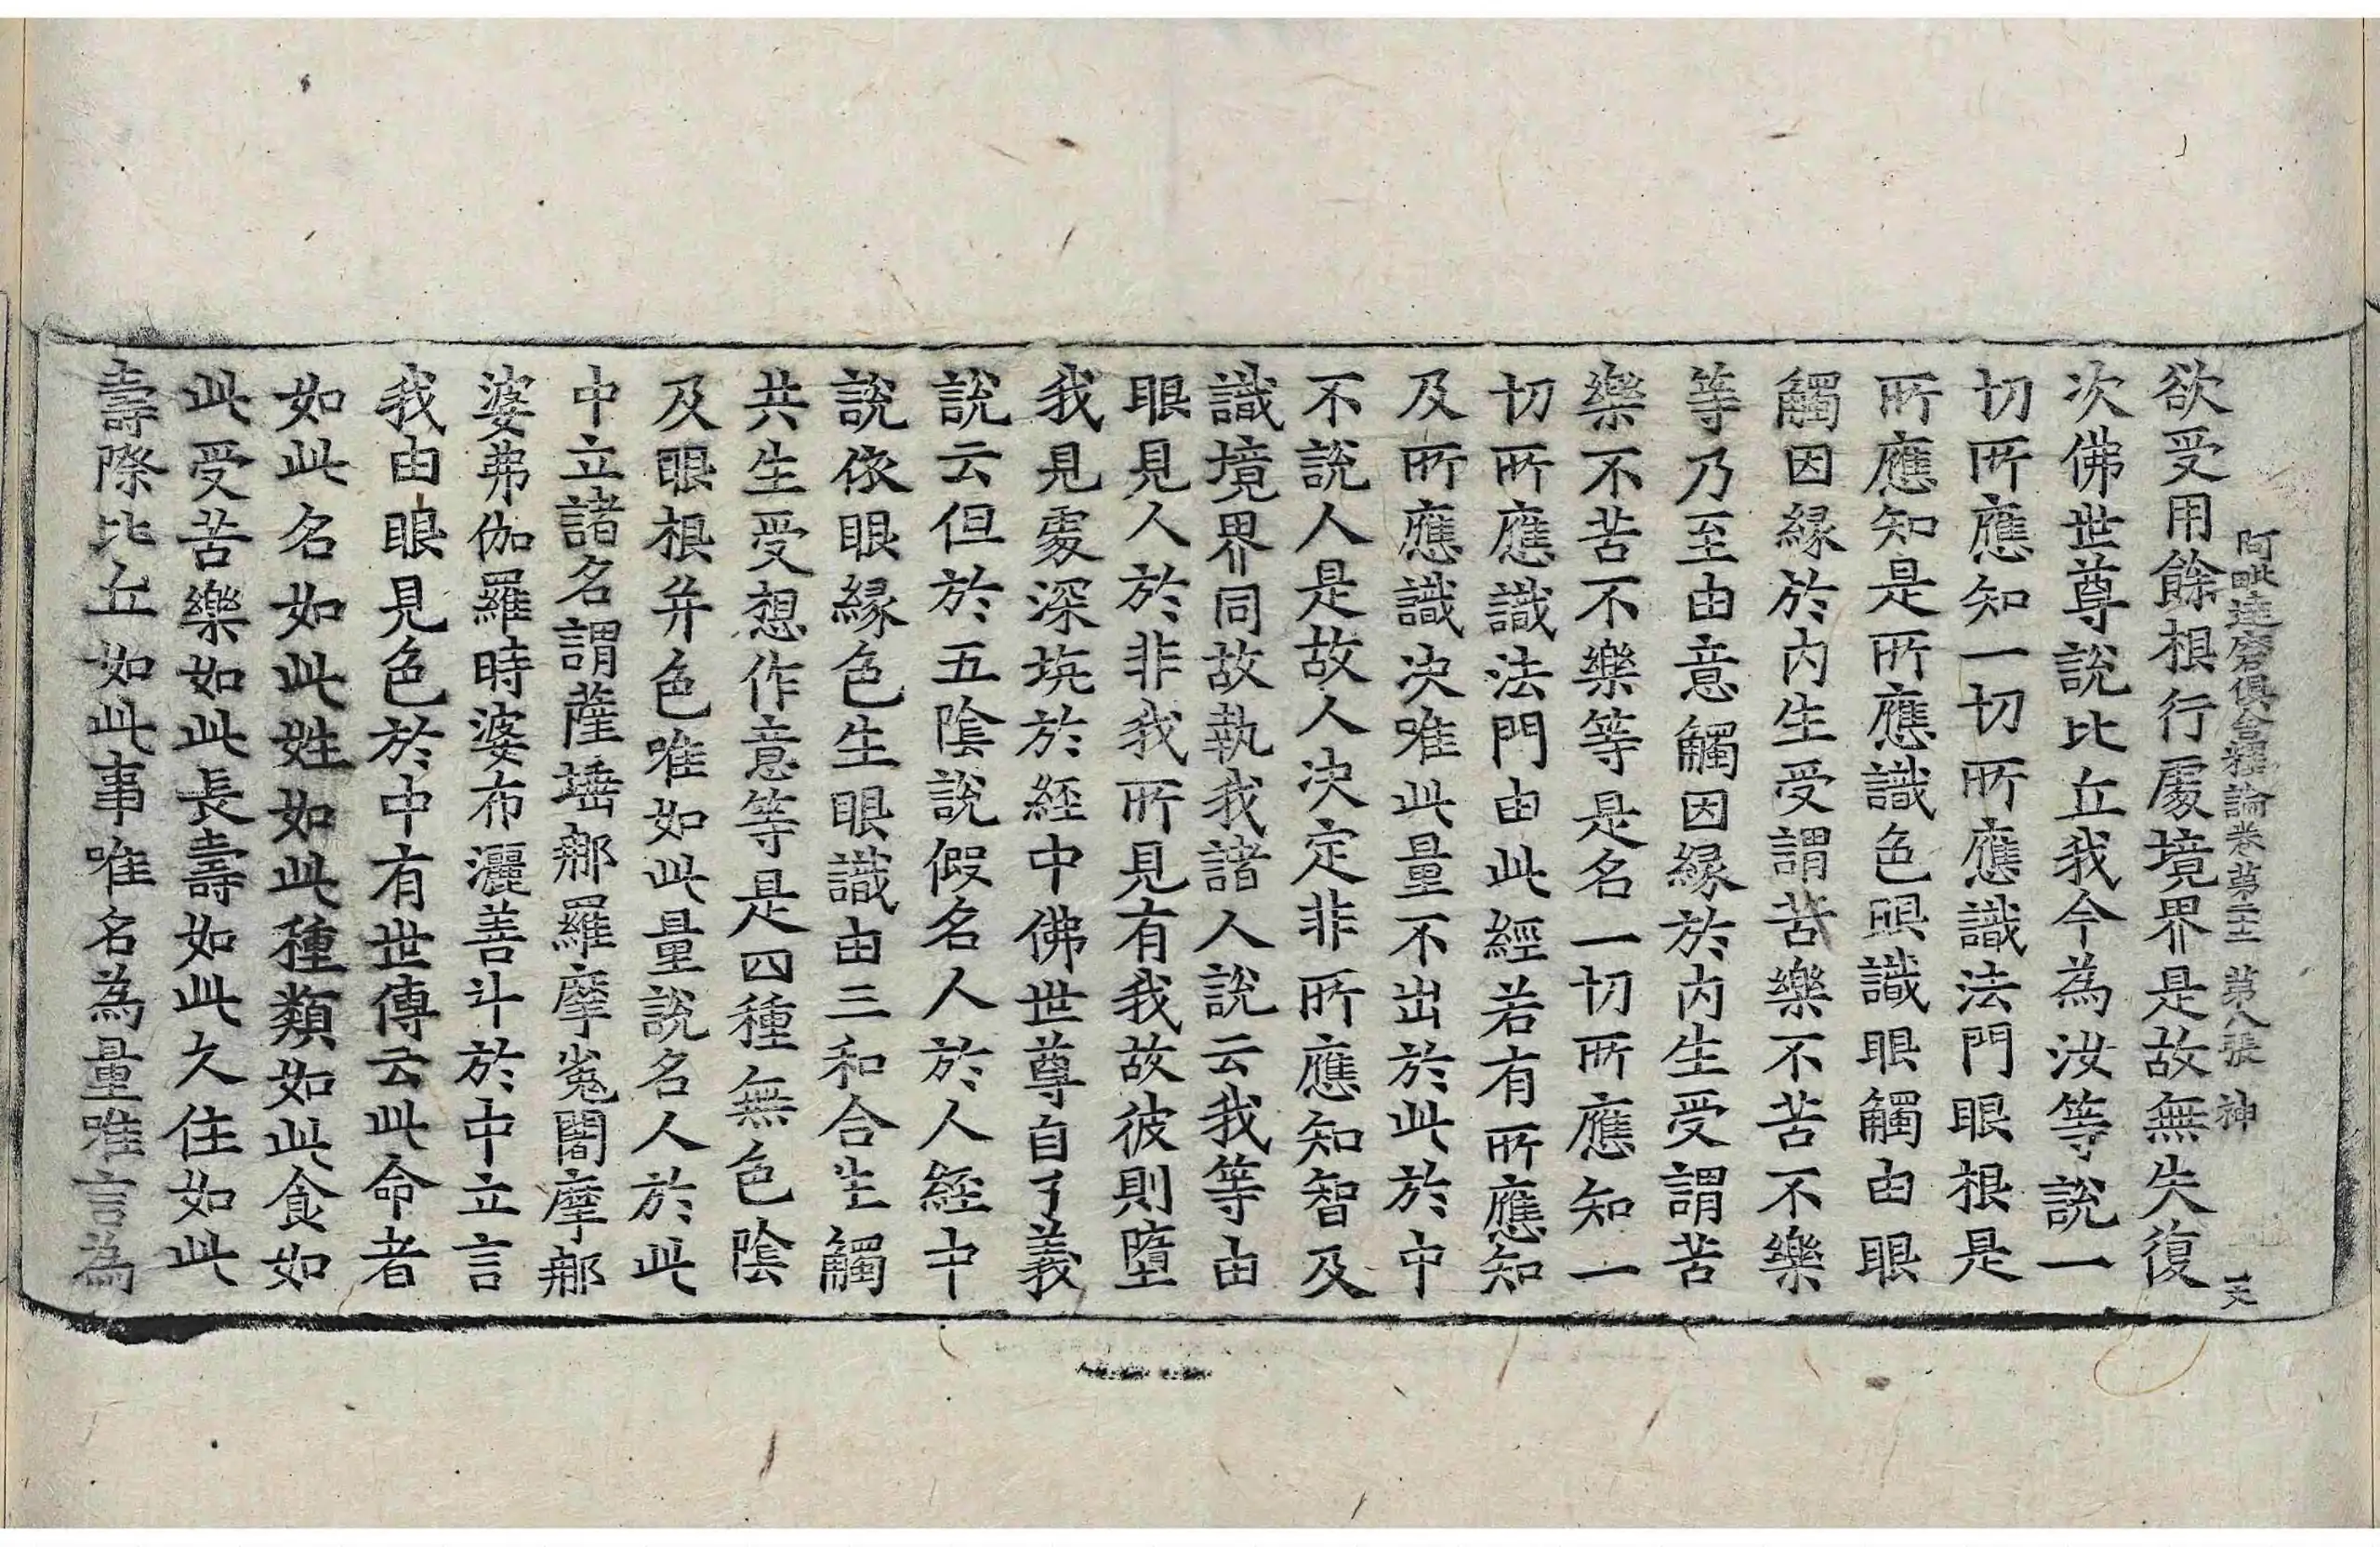 阿毗達磨俱舍釋論卷第二十二 第八張 神
欲受用餘根行處境界是故無失復
次佛世尊說比丘我今為汝等說一
切所應知一切所應識法門眼根是
所應知是所應識色眼識眼觸由眼
觸因緣於內生受謂苦樂不苦不樂
等乃至由意觸因緣於內生受謂苦
樂不苦不樂等是名一切所應知一
切所應識法門由此經若有所應知
及所應識決唯此量不出於此於中
不說人是故人決定非所應知智及
識境界同故執我諸人說云我等由
眼見人於非我所見有我故彼則墮
我見處深坑於經中佛世尊自了義
說云但於五陰說假名人於人經中
說依眼緣色生眼識由三和合生觸
共生受想作意等是四種無色陰
及眼根并色唯如此量說名人於此
中立諸名謂薩埵郍羅摩㝹闍摩郍
婆弗伽羅時婆布灑善斗於中立言
我由眼見色於中有世傳云此命者
如此名如此姓如此種類如此食如
此受苦樂如此長壽如此久住如此
壽際比丘如此事唯名為量唯言為